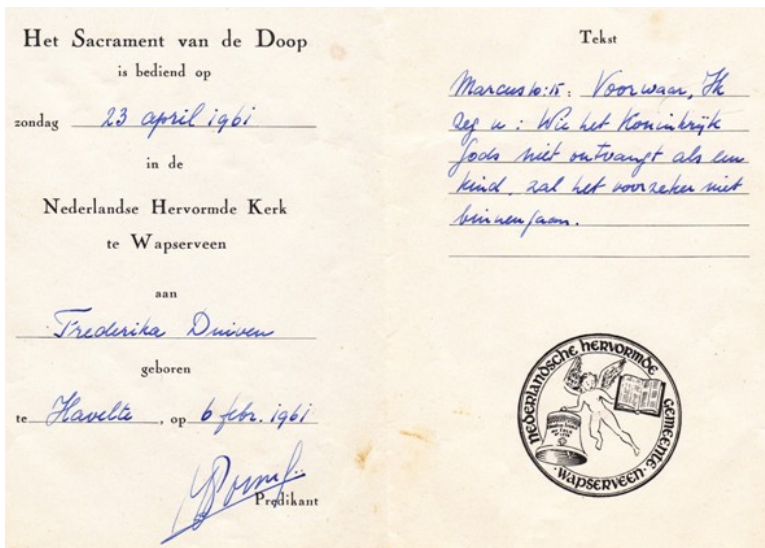 Het Sacrament van de Doop
is bediend op
zondag 23 april 1961
in de
Nederlandse Hervormde Kerk
te Wapserveen
aan
Frederika Duiven
geboren
te Havelte, op 6 febr. 1961
Predikant
Tekst
Marcus 10:15: Voorwaar, Ik
zeg u: Wie het Koninkrijk
Gods niet ontvangt als een
kind, zal het voorzeker niet
binnengaan.
NEDERLANDSCHE HERVORMDE GEMEENTE
· WAPSERVEEN ·